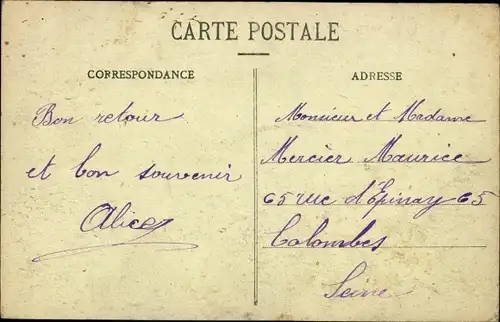 CARTE POSTALE
CORRESPONDANCE
Bon retour
et bon souvenir
Alice
ADRESSE
Monsieur et Madame
Mercier Maurice
65 rue d'Epinay 65
Colombes
Seine